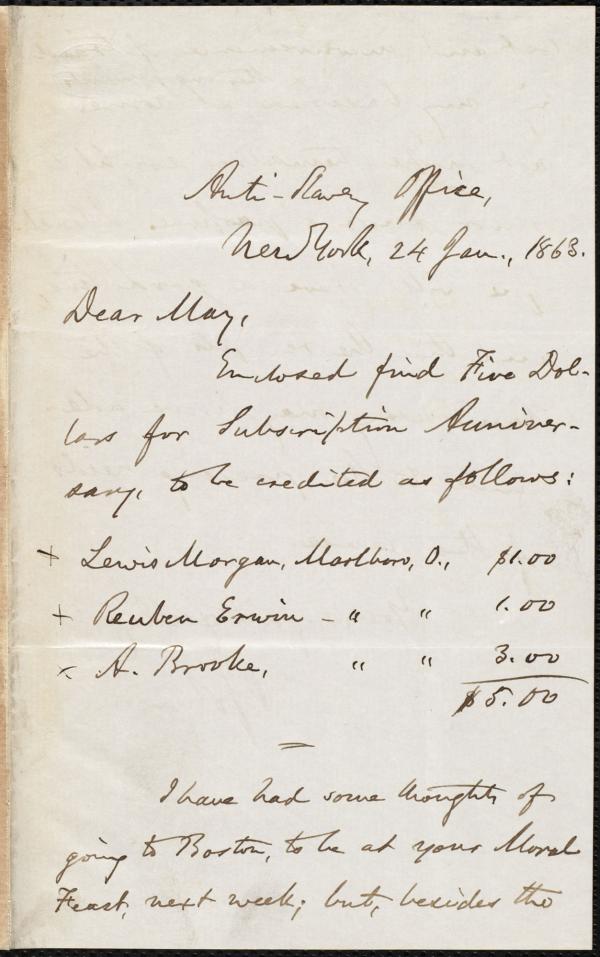 Anti-Slavery Office,
New York, 24 Jan., 1863.
Dear May,
Enclosed find Five Dol-
lars for Subscription Anniver-
sary, to be credited as follows:
+ Lewis Morgan, Marlboro, O., $1.00
+ Reuben Erwin - " " 1.00
x A. Brooke, " " 3.00
$5.00
I have had some thoughts of
going to Boston, to be at your Moral
Feast, next week; but, besides the